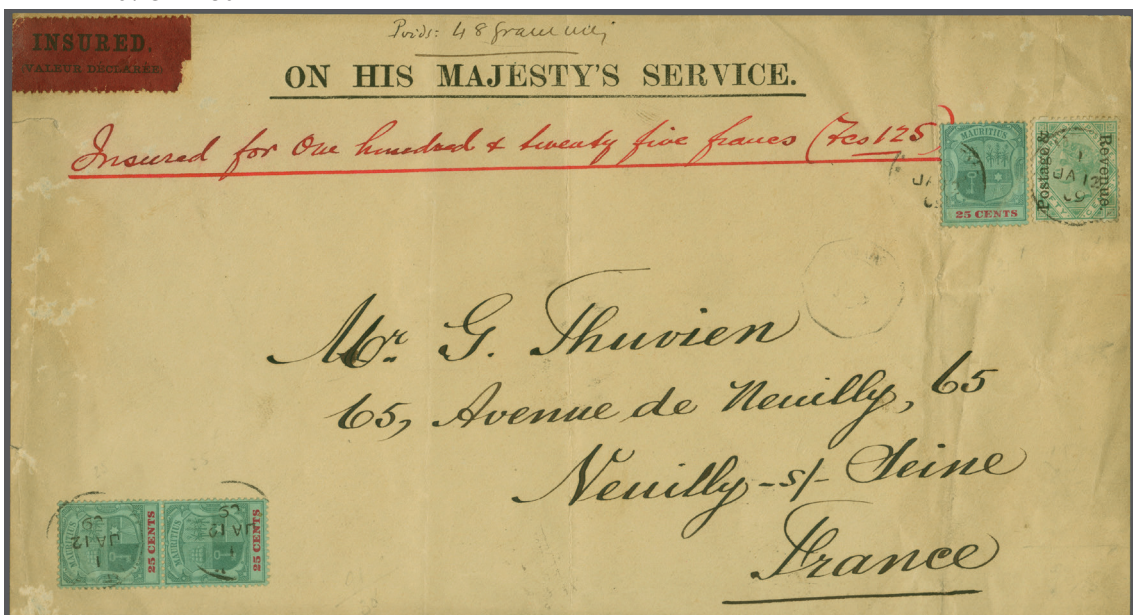 INSURED.
(VALEUR DÉCLARÉE)
Poids: 48 grammes
ON HIS MAJESTY'S SERVICE.
Insured for One hundred & twenty five francs (Fcs 125)
MAURITIUS
25 CENTS
Postage &
Revenue.
JA 12
09
Mr. G. Thuvien
65, Avenue de Neuilly, 65
Neuilly-s/-Seine
France
MAURITIUS
25 CENTS
JA 12
09
MAURITIUS
25 CENTS
JA 12
09